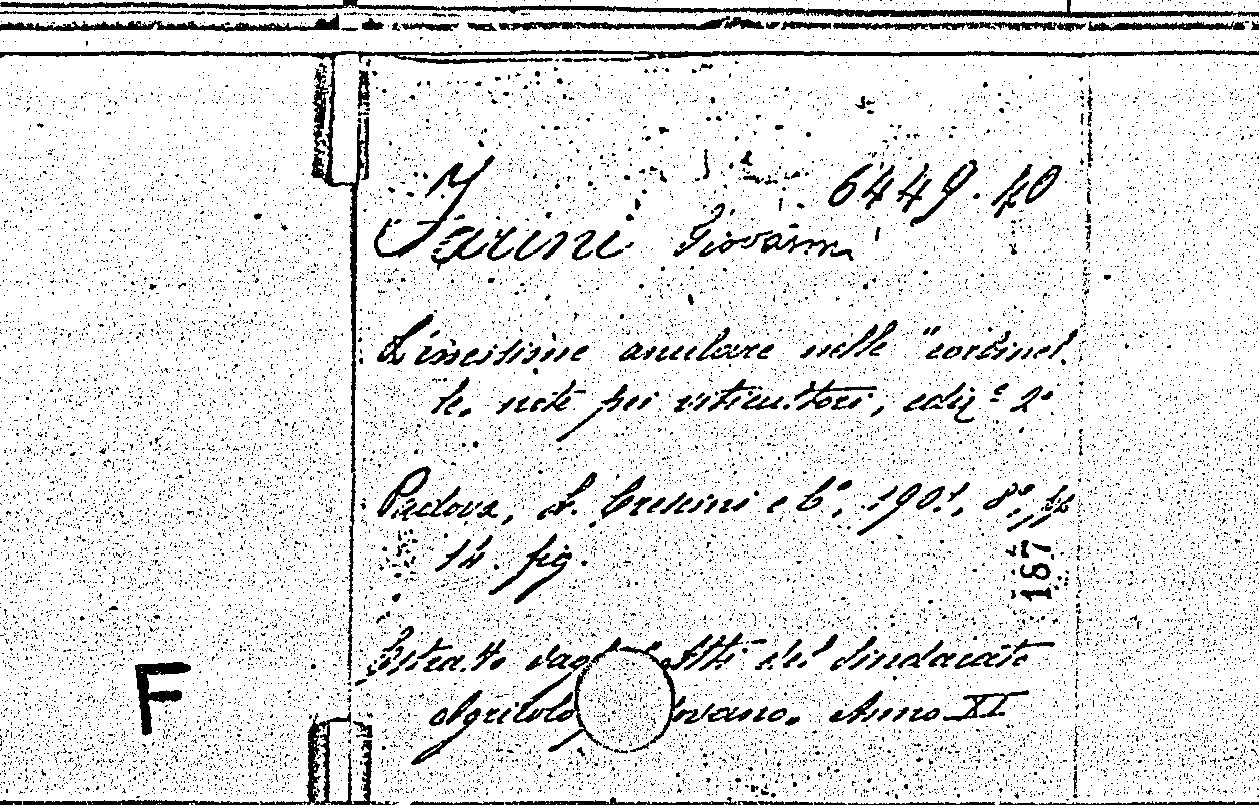 6449.40
Farini Giovanni
L'incisione anulare nelle "cordinel
le. note pei viticultori, ediz.e 2a
Padova, A. Crescini e C.o, 1901, 8o, pp
14. fig.
167
Estratto dagli Atti del Sindacato
Agricolo Padovano. Anno XI
F